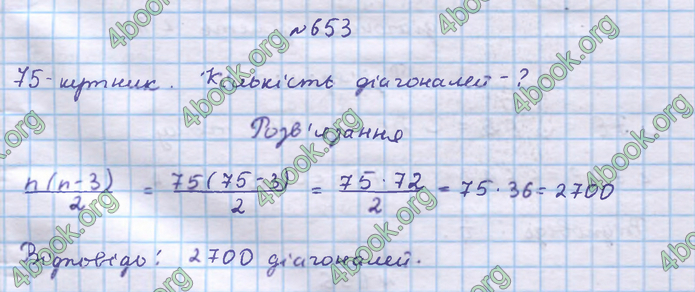 №653
75-кутник. Кількість діагоналей-?
Розв'язання
n(n-3)/2 = 75(75-3)/2 = 75·72/2 = 75·36 = 2700
Відповідь: 2700 діагоналей.
4book.org
4book.org
4book.org
4book.org
4book.org
4book.org
4book.org
4book.org
4book.org